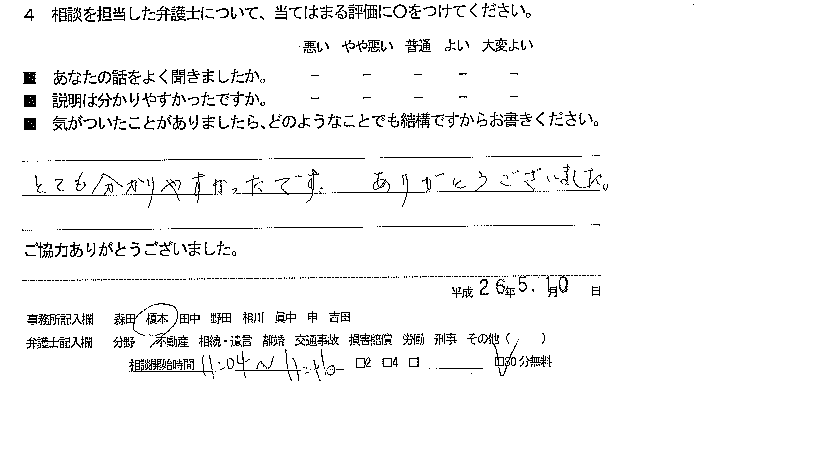 4 相談を担当した弁護士について、当てはまる評価に〇をつけてください。
悪い やや悪い 普通 よい 大変よい
■ あなたの話をよく聞きましたか。 － － － － －
■ 説明は分かりやすかったですか。 － － － － －
■ 気がついたことがありましたら、どのようなことでも結構ですからお書きください。
とても分かりやすかったです。 ありがとうございました。
ご協力ありがとうございました。
平成 26年 5.10 月 日
事務所記入欄 森田 榎本 田中 野田 相川 眞中 申 吉田
弁護士記入欄 分野 不動産 相続・遺言 離婚 交通事故 損害賠償 労働 刑事 その他( )
相談開始時間 11:04～ □2 □4 □ □30分無料